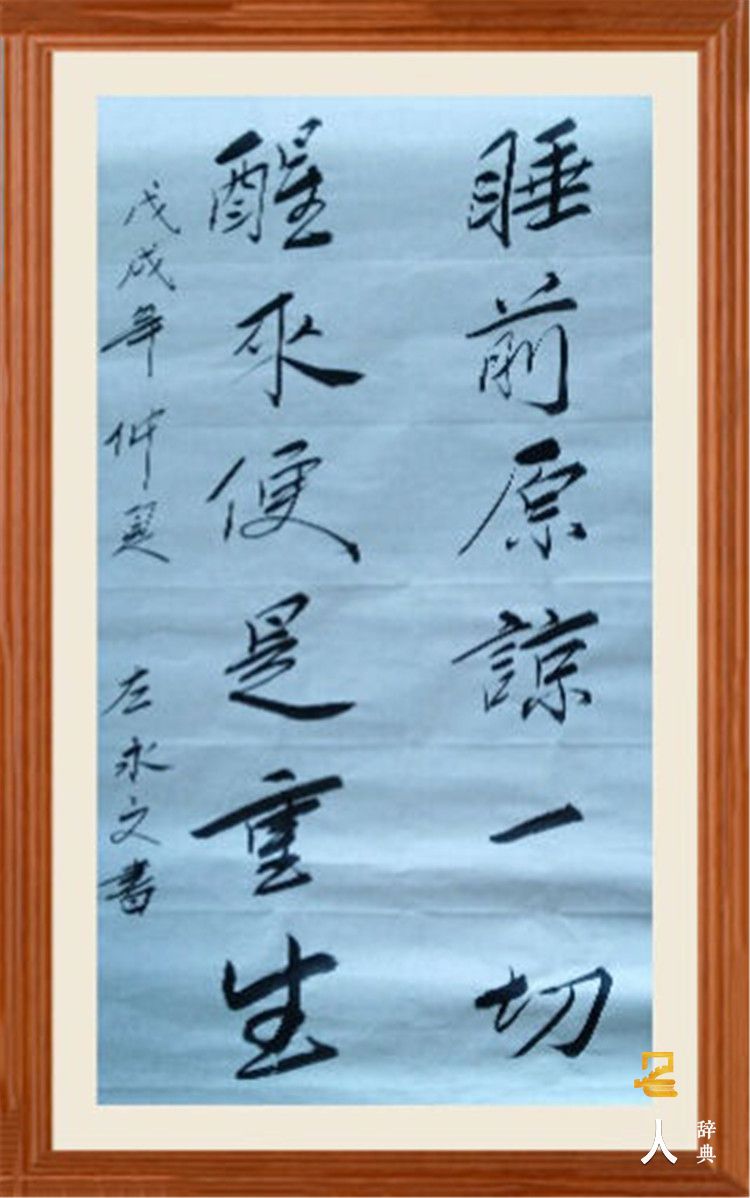 睡前原諒一切
醒來便是重生
戊戌年仲夏
左永文書
名人
辞典